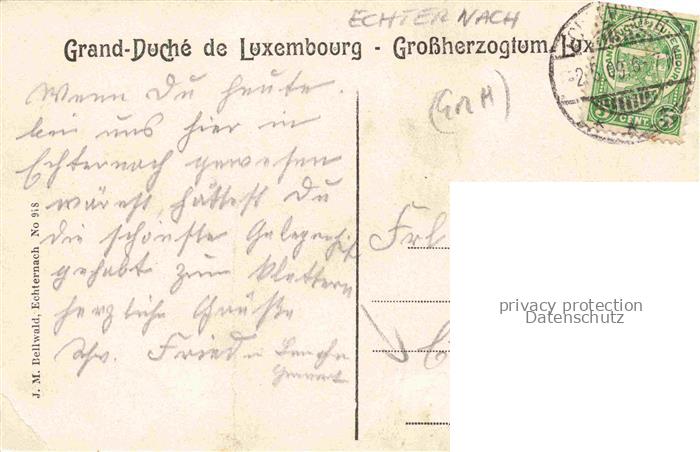 ECHTERNACH
Grand-Duché de Luxembourg - Großherzogtum Lux
Wenn Du heute
bei uns hier in
Echternach gewesen
wärest, hättest Du
die schönste Gelegenheit
gehabt zum klettern
herzliche Grüße
Schw. Fried
Frl
5 CENT. 5
J. M. Bellwald, Echternach No 918
privacy protection
Datenschutz